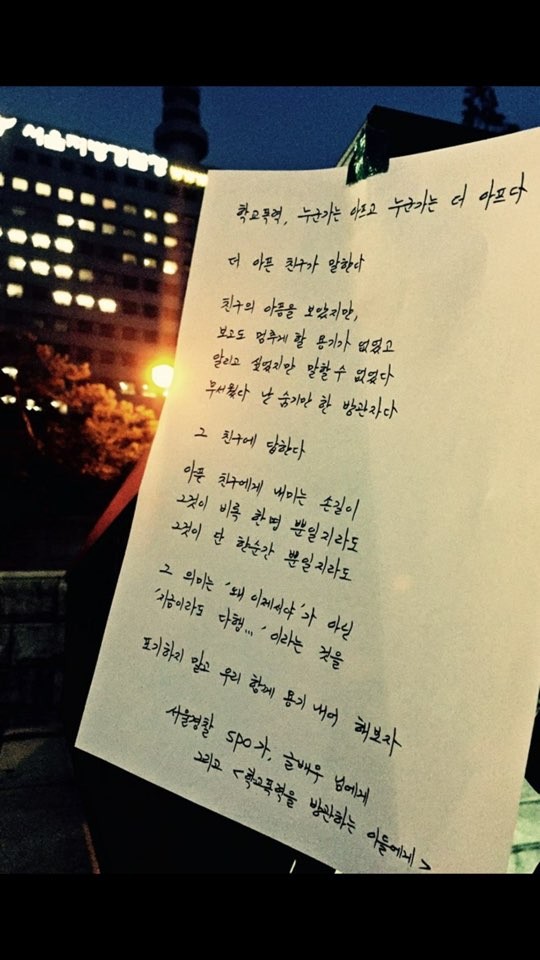 서울지방경찰청
학교폭력, 누군가는 아프고 누군가는 더 아프다
더 아픈 친구가 말한다
친구의 아픔을 보았지만,
보고도 멈추게 할 용기가 없었고
알리고 싶었지만 말할 수 없었다
무서웠다 난 숨기만 한 방관자다
그 친구에 답한다
아픈 친구에게 내미는 손길이
그것이 비록 한명 뿐일지라도
그것이 단 한순간 뿐일지라도
그 의미는 '왜 이제서야'가 아닌
'지금이라도 다행...' 이라는 것을
포기하지 말고 우리 함께 용기 내어 해보자
서울경찰 SPO가, 글배우 님에게
그리고 <학교폭력을 방관하는 이들에게>